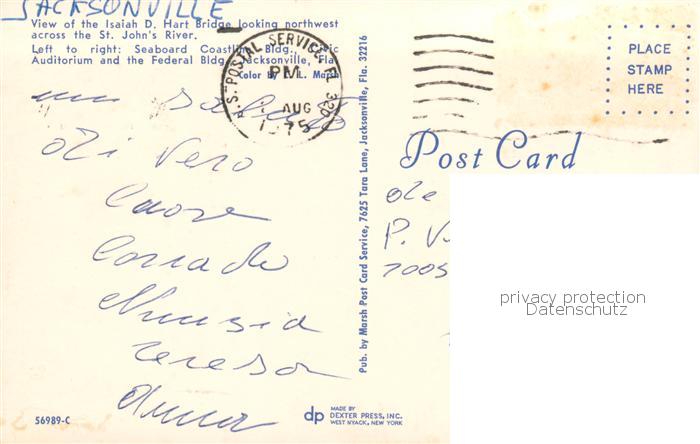 JACKSONVILLE
View of the Isaiah D. Hart Bridge looking northwest
across the St. John's River.
Left to right: Seaboard Coastline Bldg., Civic
Auditorium and the Federal Bldg., Jacksonville, Fla.
Color by L. Marsh
U.S. POSTAL SERVICE, FL 320
PM
AUG
1975
PLACE
STAMP
HERE
un saluto
di vero
cuore
Corrado
Nunzia
Teresa
Anna
Pub. by Marsh Post Card Service, 7625 Tara Lane, Jacksonville, Fla. 32216
Post Card
P. V
privacy protection
Datenschutz
56989-C
dp
MADE BY
DEXTER PRESS, INC.
WEST NYACK, NEW YORK